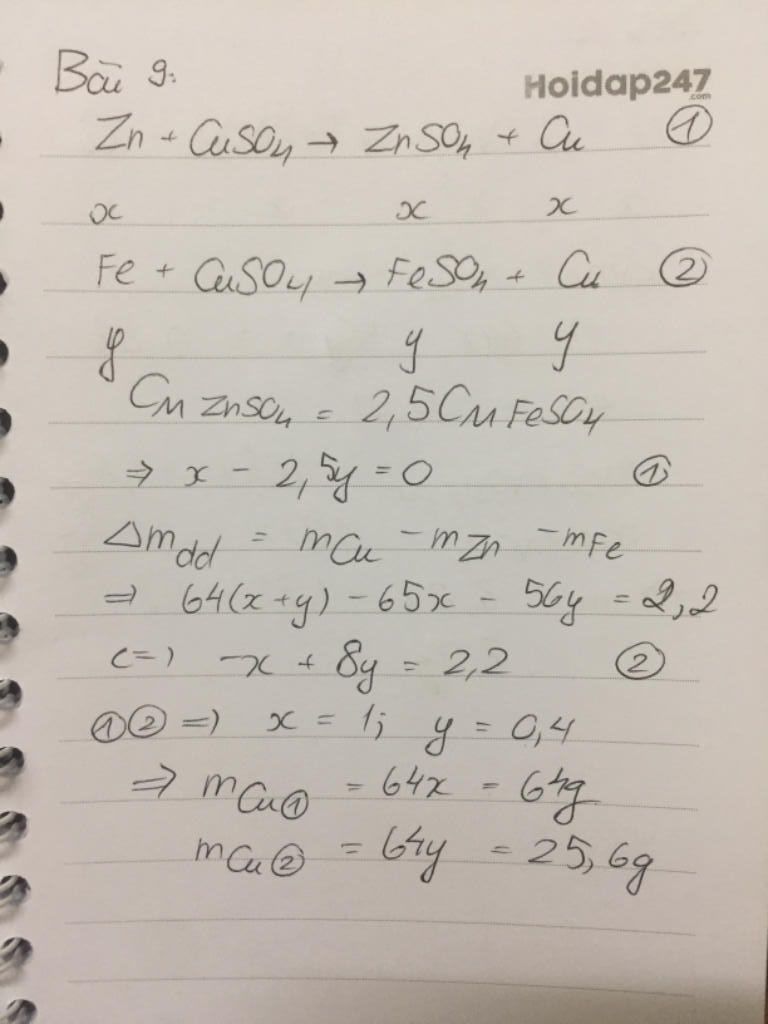 Bài 9:
Hoidap247
.com
Zn + CuSO4 → ZnSO4 + Cu ①
x x x
Fe + CuSO4 → FeSO4 + Cu ②
y y y
CM ZnSO4 = 2,5 CM FeSO4
⇒ x - 2,5y = 0 ①
Δmdd = mCu - mZn - mFe
⇒ 64(x+y) - 65x - 56y = 2,2
<=> -x + 8y = 2,2 ②
①② => x = 1; y = 0,4
⇒ mCu① = 64x = 64g
mCu② = 64y = 25,6g